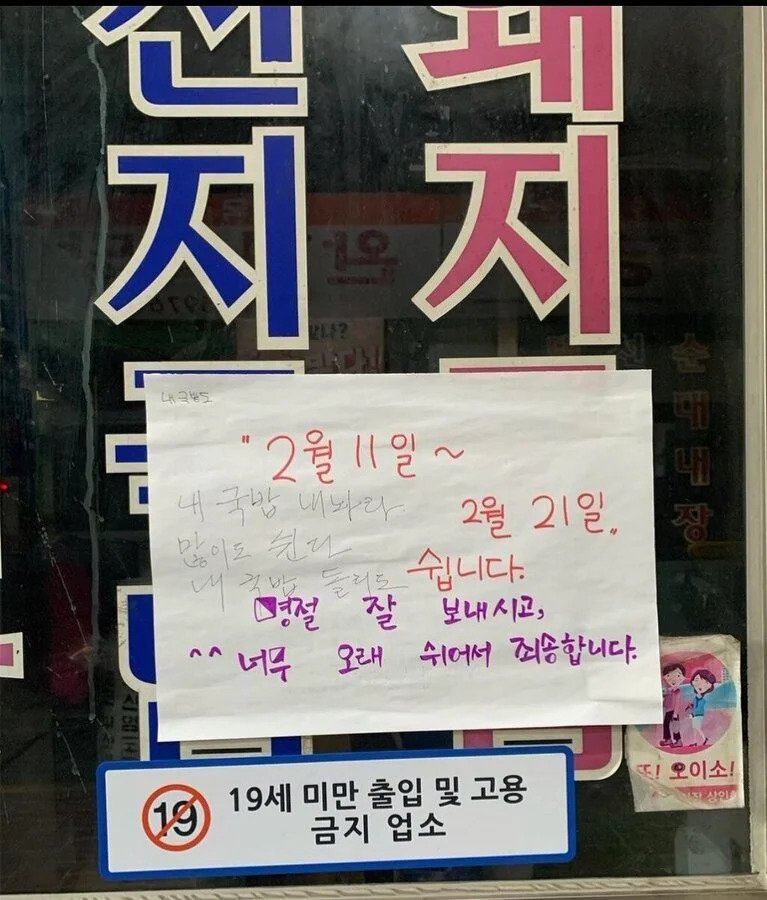 선지
돼지
내국밥도
"2월 11일 ~
2월 21일"
쉽니다.
내 국밥 내놔라
많이도 쉰다
내 국밥 돌리도
명절 잘 보내시고,
^^ 너무 오래 쉬어서 죄송합니다.
순대내장
또! 오이소!
19 19세 미만 출입 및 고용
금지 업소